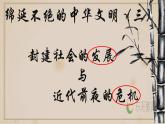 绵延不绝的中华文明（三）
封建社会的发展
与
近代前夜的危机